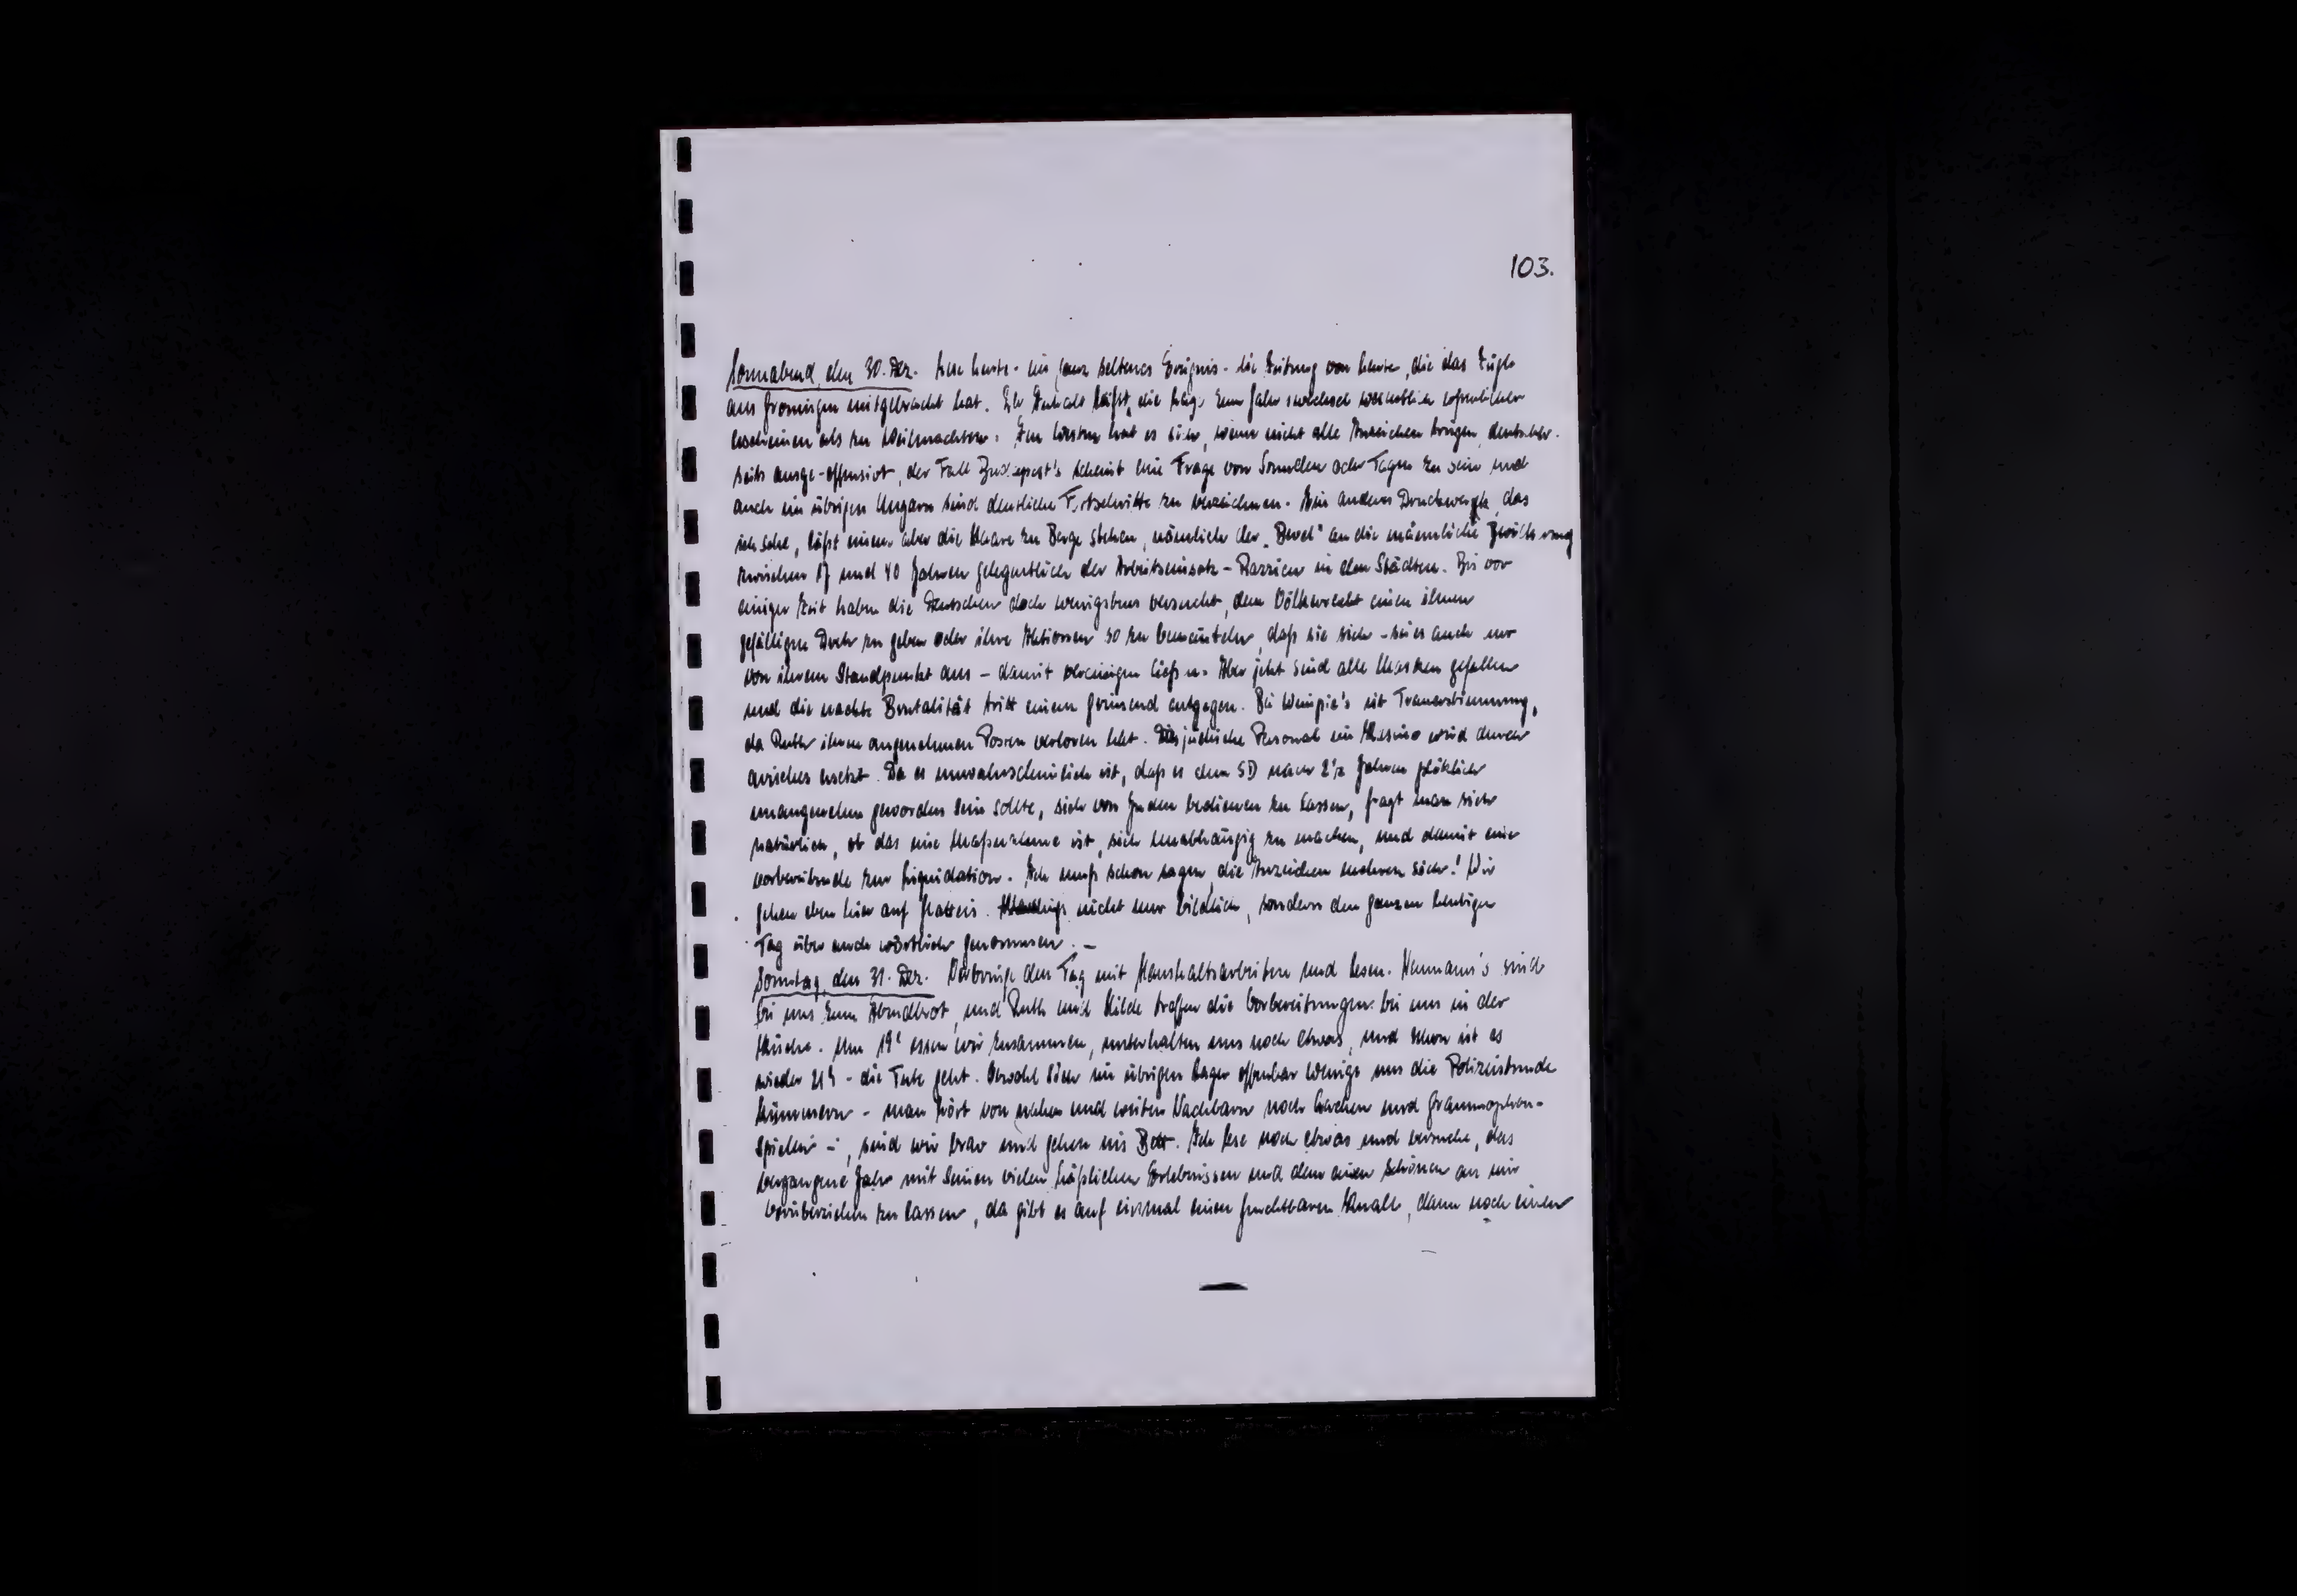 103.
Sonnabend, den 30. Dez. Lese heute - ein ganz seltenes Ereignis - die Zeitung von heute, die das Zügle
aus Groningen mitgebracht hat. Ihr Inhalt läßt die Lage zum Jahreswechsel wesentlich erfreulicher
erscheinen als zu Weihnachten. Im Westen hat es sich, wenn nicht alle Anzeichen trügen, deutscher-
seits ausge-offensivt, der Fall Budapest's scheint eine Frage von Stunden oder Tagen zu sein und
auch im übrigen Ungarn sind deutliche Fortschritte zu verzeichnen. Ein anderes Druckwerk, das
ich sehe, läßt einem aber die Haare zu Berge stehen, nämlich der „Bevel" an die männliche Bevölkerung
zwischen 17 und 40 Jahren gelegentlich der Arbeitseinsatz-Razzien in den Städten. Bis vor
einiger Zeit haben die Deutschen doch wenigstens versucht, dem Völkerrecht einen ihnen
gefälligen Dreh zu geben oder ihre Aktionen so zu bemänteln, daß sie sich - sei es auch nur
von ihrem Standpunkt aus - damit vereinigen ließen. Aber jetzt sind alle Masken gefallen
und die nackte Brutalität tritt einem grinsend entgegen. Bei ist Trauerstimmung,
da Ruth ihren angenehmen Posten verloren hat. Das jüdische Personal im Kasino wird durch
arisches ersetzt. Da es unwahrscheinlich ist, daß es dem SD nach 2½ Jahren plötzlich
unangenehm geworden sein sollte, sich von Juden bedienen zu lassen, fragt man sich
natürlich, ob das eine Maßnahme ist, sich unabhängig zu machen, und damit eine
vorbereitende zur Liquidation. Ich muß schon sagen, die Anzeichen mehren sich! Wir
gehen eben hier auf Glatteis. nicht nur bildlich, sondern den ganzen heutigen
Tag über auch wörtlich genommen. -
Sonntag, den 31. Dez. Verbringe den Tag mit Haushaltsarbeiten und Lesen. Neumann's sind
bei uns zum Abendbrot, und Ruth und Hilde treffen die Vorbereitungen bei uns in der
Küche. Um 19h essen wir zusammen, unterhalten uns noch etwas, und schon ist es
wieder 21h - die Tute geht. Obwohl sich im übrigen Lager offenbar wenige um die Polizeistunde
kümmern - man hört von nahen und weiten Nachbarn noch Lachen und Grammophon-
spielen -, sind wir brav und gehen ins Bett. Ich lese noch etwas und versuche, das
vergangene Jahr mit seinen vielen häßlichen Erlebnissen und dem einen schönen an mir
vorüberziehen zu lassen, da gibt es auf einmal einen furchtbaren Knall, dann noch einen